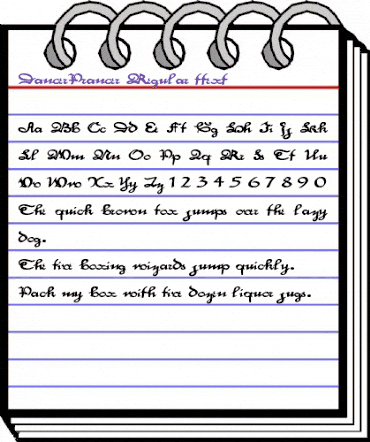 DancerPrancer Regular ttext
Aa Bb Cc Dd Ee Ff Gg Hh Ii Jj Kk
Ll Mm Nn Oo Pp Qq Rr Ss Tt Uu
Vv Ww Xx Yy Zz 1 2 3 4 5 6 7 8 9 0
The quick brown fox jumps over the lazy
dog.
The five boxing wizards jump quickly.
Pack my box with five dozen liquor jugs.